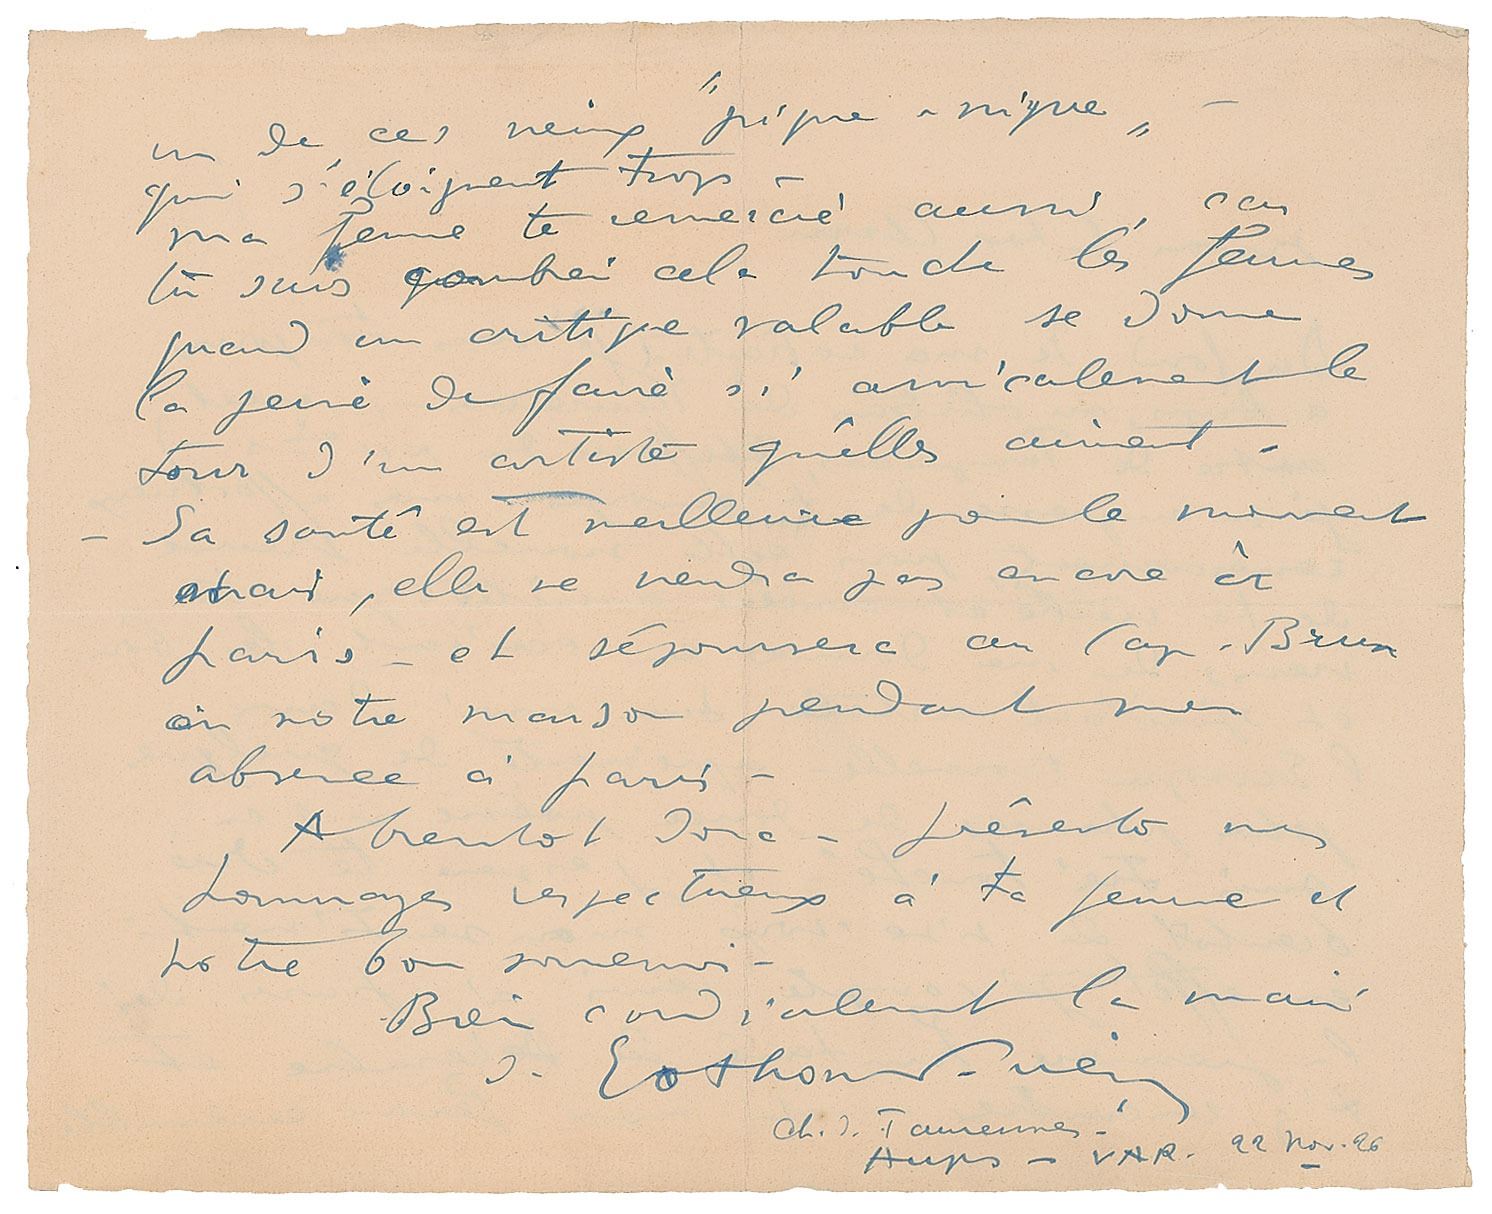 un de ces vieux "pique-nique" -
qui s'éloignent trop -
ma femme te remercie aussi, car
tu sais combien cela touche les femmes
quand un critique valable se donne
la peine de faire si amicalement le
tour d'un artiste qu'elles aiment -
- Sa santé est meilleure pour le moment
mais, elle ne viendra pas encore à
paris - et séjournera au Cap-Brun
en notre maison pendant mon
absence à paris -
A bientot donc - présente mes
hommages respectueux à ta femme et
notre bon souvenir -
Bien cordialement la main
d. Eothon Friesz
ch. d. Taurennes -
Aups - VAR. 22 Nov. 26